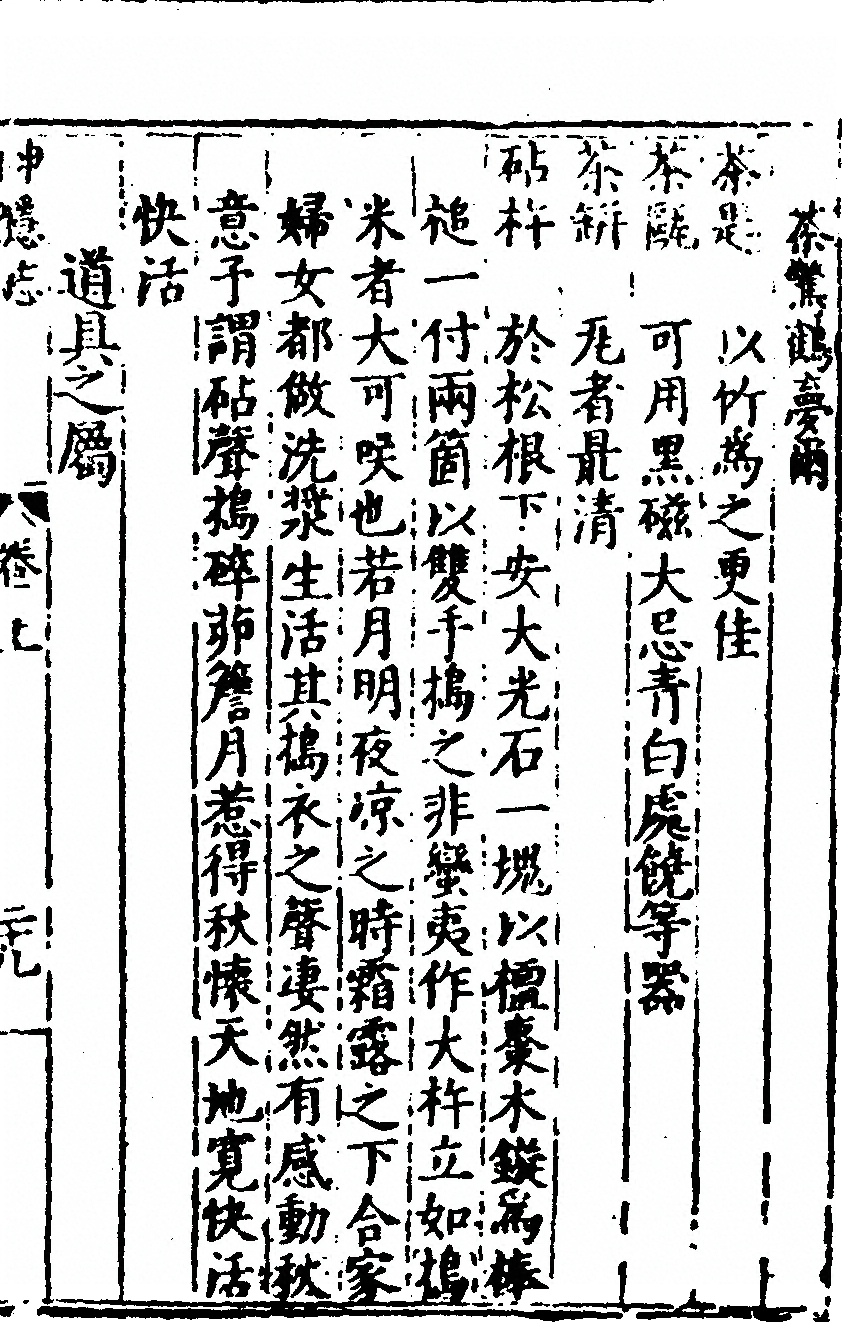 茶鴦鶴夢兩
茶 以竹爲之更佳
茶甌 可用黑磁大忌青白處饒等器
茶缾 瓦者最清
砧杵 於松根下安大光石一塊以櫃棗木鏇爲棒
槌一付兩箇以雙手搗之非蠻夷作大杵立如搗
米者大可咲也若月明夜凉之時霜露之下合家
婦女都做洗漿生活其搗衣之聲凄然有感動秋
意予謂砧聲搗碎茆簷月惹得秋懷天地寛快活
快活
道具之屬
神隱志 卷上 二十九